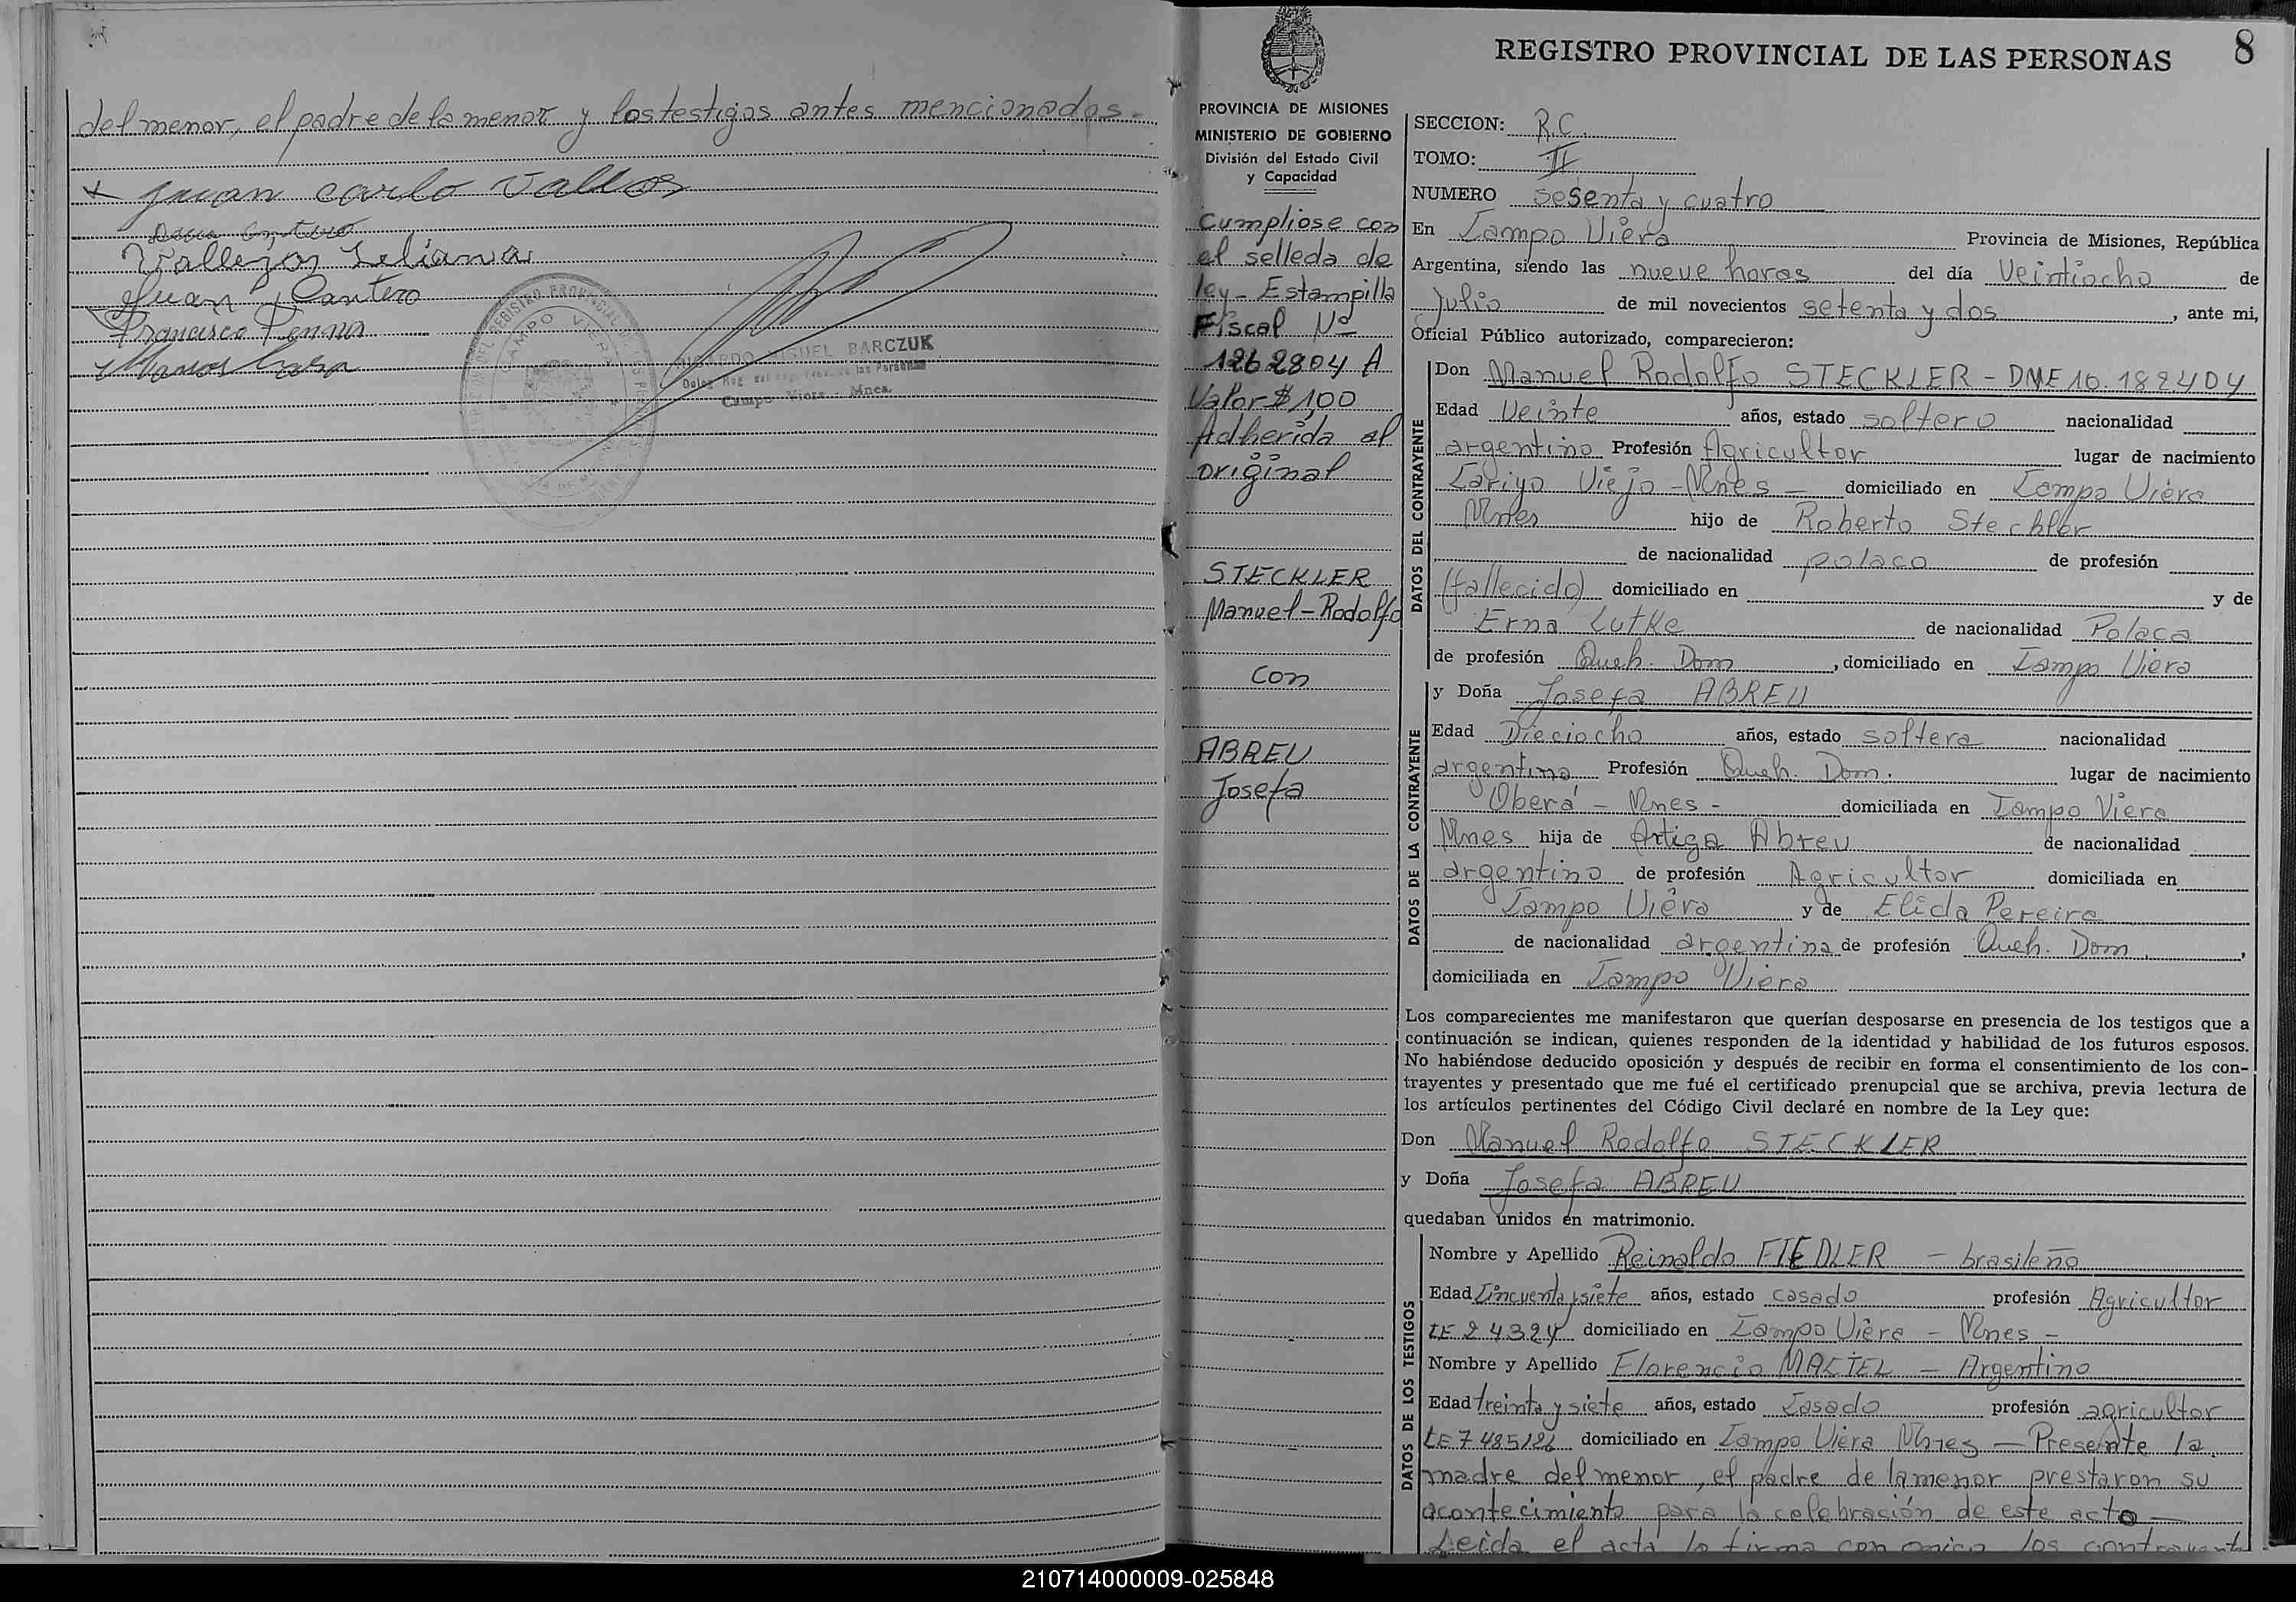 del menor, el padre de la menor y los testigos antes mencionados.-
x Juan carlo Vallos
Vallejos Leliana
Juan Cantero
Francisco Penna
REGISTRO PROVINCIAL
CAMPO VIERA
RICARDO MIGUEL BARCZUK
Campo Viera - Mnes.
REGISTRO PROVINCIAL DE LAS PERSONAS
8
PROVINCIA DE MISIONES
MINISTERIO DE GOBIERNO
División del Estado Civil
y Capacidad
Cumpliose con
el sellada de
ley - Estampilla
Fiscal Nº
1262804 A
Valor $ 1,00
Adherida al
original
STECKLER
Manuel-Rodolfo
con
ABREU
Josefa
SECCION: R.C.
TOMO: II
NUMERO sesenta y cuatro
En Campo Viera Provincia de Misiones, República
Argentina, siendo las nueve horas del día Veintiocho de
Julio de mil novecientos setenta y dos, ante mi,
Oficial Público autorizado, comparecieron:
DATOS DEL CONTRAYENTE
Don Manuel Rodolfo STECKLER - DNE 10.182404
Edad Veinte años, estado soltero nacionalidad
argentino Profesión Agricultor lugar de nacimiento
Viejo - Mnes - domiciliado en Campo Viera
Mnes hijo de Roberto Steckler
de nacionalidad polaco de profesión
(fallecido) domiciliado en y de
Erna Lutke de nacionalidad Polaca
de profesión Queh. Dom, domiciliado en Campo Viera
DATOS DE LA CONTRAYENTE
y Doña Josefa ABREU
Edad Dieciocho años, estado soltera nacionalidad
argentina Profesión Queh. Dom. lugar de nacimiento
Oberá - Mnes - domiciliada en Campo Viera
Mnes hija de Artiga Abreu de nacionalidad
argentino de profesión Agricultor domiciliada en
Campo Viera y de Elida Pereira
de nacionalidad argentina de profesión Queh. Dom,
domiciliada en Campo Viera
Los comparecientes me manifestaron que querían desposarse en presencia de los testigos que a
continuación se indican, quienes responden de la identidad y habilidad de los futuros esposos.
No habiéndose deducido oposición y después de recibir en forma el consentimiento de los con-
trayentes y presentado que me fué el certificado prenupcial que se archiva, previa lectura de
los artículos pertinentes del Código Civil declaré en nombre de la Ley que:
Don Manuel Rodolfo STECKLER
y Doña Josefa ABREU
quedaban unidos en matrimonio.
DATOS DE LOS TESTIGOS
Nombre y Apellido Reinaldo FIEDLER - brasileño
Edad Cincuenta y siete años, estado casado profesión Agricultor
CE 24324 domiciliado en Campo Viera - Mnes -
Nombre y Apellido Florencio MACIEL - Argentino
Edad treinta y siete años, estado Casado profesión agricultor
LE 7485126 domiciliado en Campo Viera Mnes - Presente la
madre del menor, el padre de la menor prestaron su
acontecimiento para la celebrasión de este acto -
Leida el acta la firma con migo los contrayent
210714000009-025848